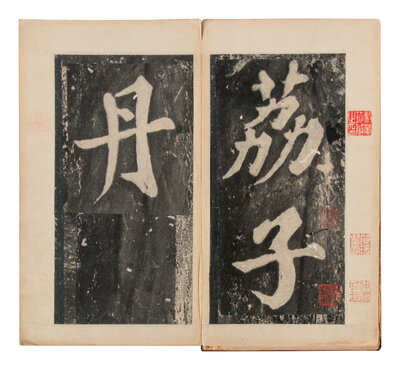 荔子
丹